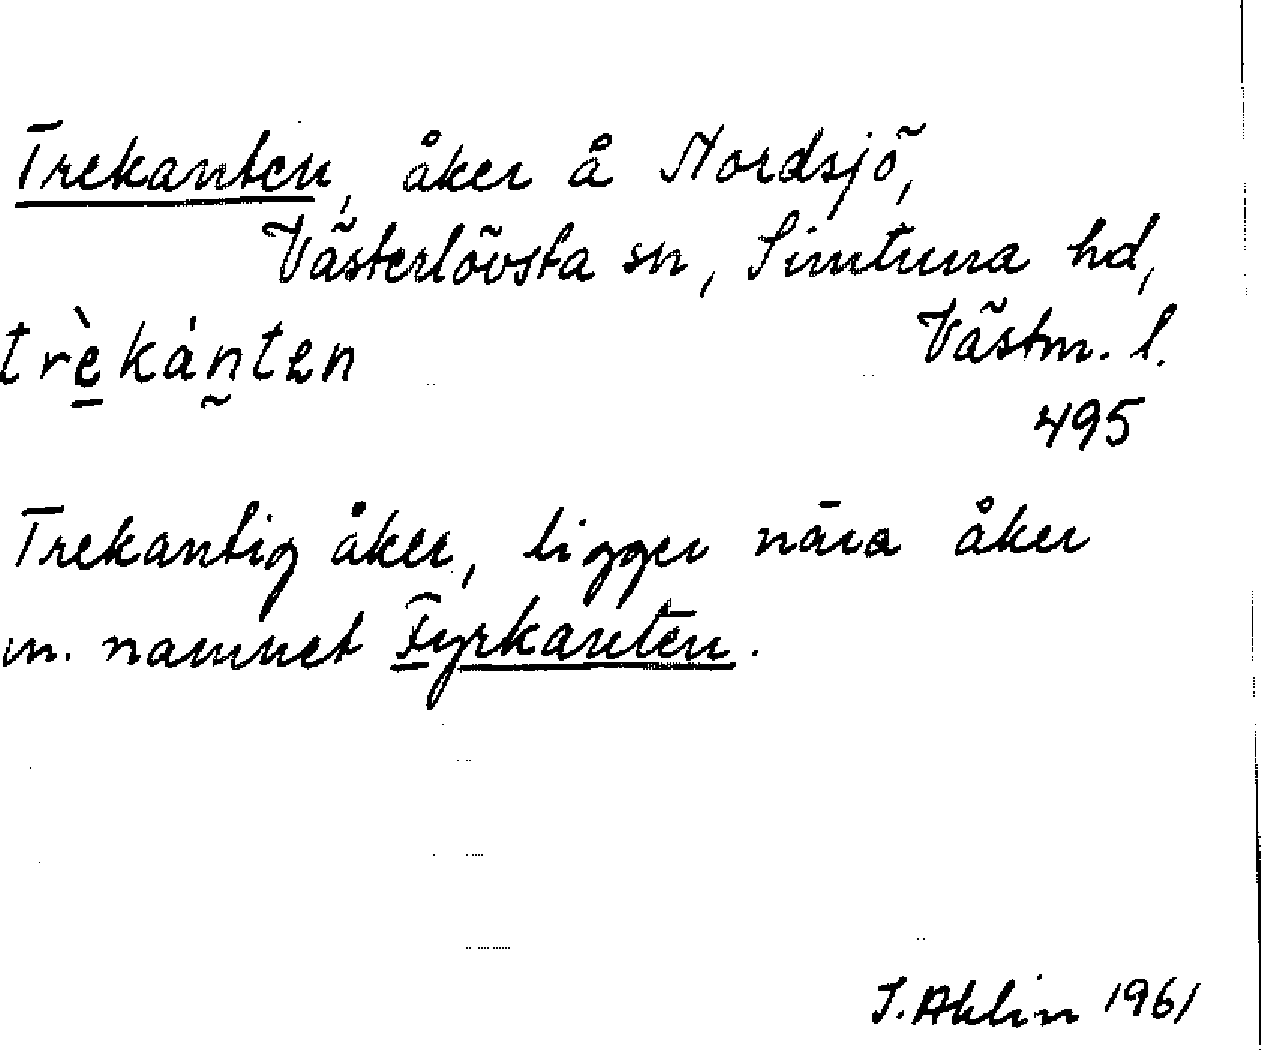 Trekanten, åker å Nordsjö,
Västerlövsta sn, Simtuna hd,
Västm. l.
trèkánten
495
Trekantig åker, ligger nära åker
m. namnet Fyrkanten.
J. Ahlin 1961